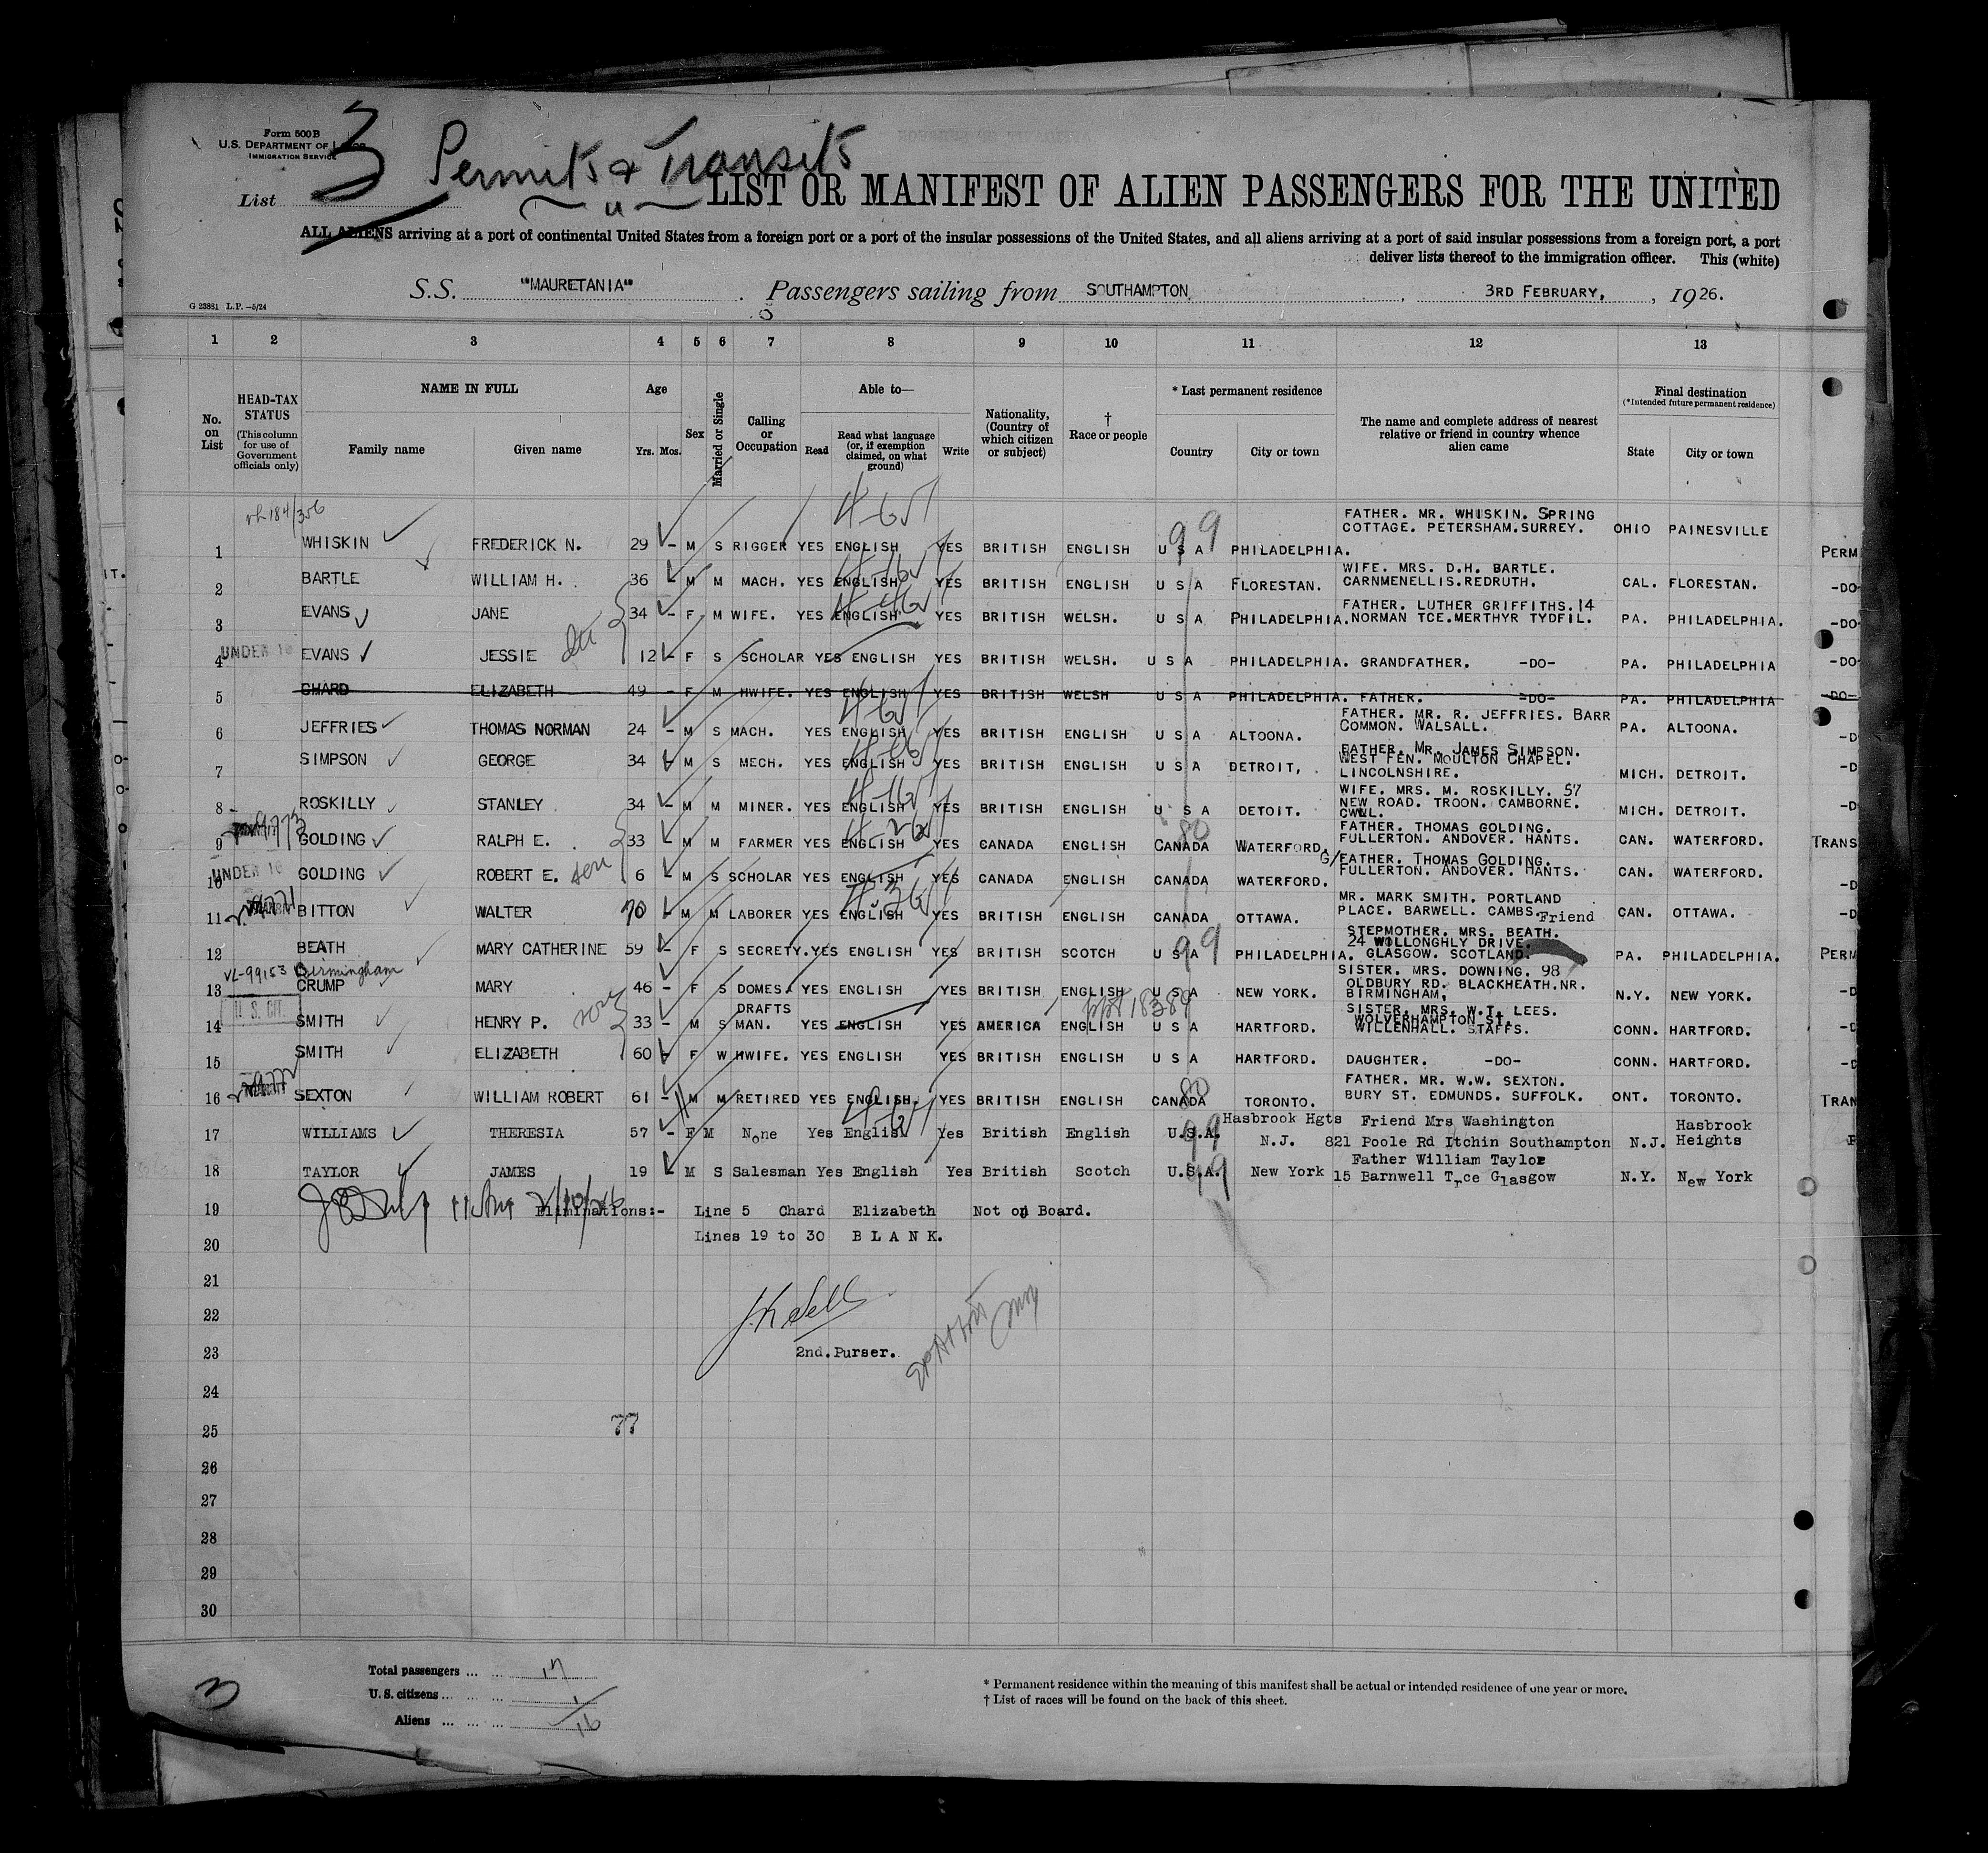 Form 500 B
U.S. DEPARTMENT OF
IMMIGRATION SERVICE
3 Permits & Transits
List
LIST OR MANIFEST OF ALIEN PASSENGERS FOR THE UNITED
ALL ALIENS arriving at a port of continental United States from a foreign port or a port of the insular possessions of the United States, and all aliens arriving at a port of said insular possessions from a foreign port, a port
deliver lists thereof to the immigration officer. This (white)
S.S. "MAURETANIA" Passengers sailing from SOUTHAMPTON, 3RD FEBRUARY, 1926.
G 23881 L.P.—5/24
1 2 3 4 5 6 7 8 9 10 11 12 13
No. on List
HEAD-TAX STATUS (This column for use of Government officials only)
NAME IN FULL
Family name Given name
Age Yrs. Mos.
Sex
Married or Single
Calling or Occupation
Able to—
Read Read what language (or, if exemption claimed, on what ground) Write
Nationality, (Country of which citizen or subject)
† Race or people
* Last permanent residence
Country City or town
The name and complete address of nearest relative or friend in country whence alien came
Final destination (*Intended future permanent residence)
State City or town
1 WHISKIN FREDERICK N. 29 - M S RIGGER YES ENGLISH YES BRITISH ENGLISH U S A PHILADELPHIA. FATHER. MR. WHISKIN. SPRING COTTAGE. PETERSHAM.SURREY. OHIO PAINESVILLE PERM
2 BARTLE WILLIAM H. 36 - M M MACH. YES ENGLISH YES BRITISH ENGLISH U S A FLORESTAN. WIFE. MRS. D.H. BARTLE. CARNMENELLIS.REDRUTH. CAL. FLORESTAN. -DO-
3 EVANS JANE 34 - F M WIFE. YES ENGLISH YES BRITISH WELSH. U S A PHILADELPHIA. FATHER. LUTHER GRIFFITHS.14 NORMAN TCE.MERTHYR TYDFIL. PA. PHILADELPHIA. -DO-
4 UNDER 16 EVANS JESSIE 12 - F S SCHOLAR YES ENGLISH YES BRITISH WELSH. U S A PHILADELPHIA. GRANDFATHER. -DO- PA. PHILADELPHIA -DO-
5 CHARD ELIZABETH 49 - F M HWIFE. YES ENGLISH YES BRITISH WELSH U S A PHILADELPHIA. FATHER. -DO- PA. PHILADELPHIA -DO-
6 JEFFRIES THOMAS NORMAN 24 - M S MACH. YES ENGLISH YES BRITISH ENGLISH U S A ALTOONA. FATHER. MR. R. JEFFRIES. BARR COMMON. WALSALL. PA. ALTOONA. -D
7 SIMPSON GEORGE 34 - M S MECH. YES ENGLISH YES BRITISH ENGLISH U S A DETROIT, FATHER. MR. JAMES SIMPSON. WEST FEN. MOULTON CHAPEL. LINCOLNSHIRE. MICH. DETROIT. -D
8 ROSKILLY STANLEY 34 - M M MINER. YES ENGLISH YES BRITISH ENGLISH U S A DETOIT. WIFE. MRS. M. ROSKILLY. 57 NEW ROAD. TROON. CAMBORNE. CWLL. MICH. DETROIT. -D
9 GOLDING RALPH E. 33 - M M FARMER YES ENGLISH YES CANADA ENGLISH CANADA WATERFORD. FATHER. THOMAS GOLDING. FULLERTON. ANDOVER. HANTS. CAN. WATERFORD. TRANS
10 UNDER 16 GOLDING ROBERT E. son 6 - M S SCHOLAR YES ENGLISH YES CANADA ENGLISH CANADA WATERFORD. G/FATHER. THOMAS GOLDING. FULLERTON. ANDOVER. HANTS. CAN. WATERFORD. -D
11 BITTON WALTER 70 - M M LABORER YES ENGLISH YES BRITISH ENGLISH CANADA OTTAWA. MR. MARK SMITH. PORTLAND PLACE. BARWELL. CAMBS. Friend CAN. OTTAWA. -D
12 BEATH MARY CATHERINE 59 - F S SECRETY. YES ENGLISH YES BRITISH SCOTCH U S A PHILADELPHIA. STEPMOTHER. MRS. BEATH. 24 WOLLONGHLY DRIVE. GLASGOW. SCOTLAND. PA. PHILADELPHIA. PERM
VL-99153 Birmingham
13 CRUMP MARY 46 - F S DOMES. YES ENGLISH YES BRITISH ENGLISH U S A NEW YORK. SISTER. MRS. DOWNING. 98 OLDBURY RD. BLACKHEATH.NR. BIRMINGHAM, N.Y. NEW YORK. -D
14 U. S. CIT. SMITH HENRY P. 33 - M S DRAFTS MAN. YES ENGLISH YES AMERICA ENGLISH U S A HARTFORD. SISTER. MRS. W.T. LEES. WOLVERHAMPTON ST. WILLENHALL. STAFFS. CONN. HARTFORD. -D
15 SMITH ELIZABETH 60 - F W HWIFE. YES ENGLISH YES BRITISH ENGLISH U S A HARTFORD. DAUGHTER. -DO- CONN. HARTFORD. -D
16 SEXTON WILLIAM ROBERT 61 - M M RETIRED YES ENGLISH. YES BRITISH ENGLISH CANADA TORONTO. FATHER. MR. W.W. SEXTON. BURY ST. EDMUNDS. SUFFOLK. ONT. TORONTO. TRAN
17 WILLIAMS THERESIA 57 - F M None Yes English Yes British English U.S.A. Hasbrook Hgts N.J. Friend Mrs Washington 821 Poole Rd Itchin Southampton N.J. Hasbrook Heights
18 TAYLOR JAMES 19 M S Salesman Yes English Yes British Scotch U.S.A. New York Father William Taylor 15 Barnwell Trce Glasgow N.Y. New York
19 Eliminations:- Line 5 Chard Elizabeth Not on Board.
20 Lines 19 to 30 B L A N K.
21
22
23 2nd.Purser.
24
25 77
26
27
28
29
30
Total passengers ... ... 17
U. S. citizens ... ... ... 1
Aliens ... ... ... 16
3
* Permanent residence within the meaning of this manifest shall be actual or intended residence of one year or more.
† List of races will be found on the back of this sheet.